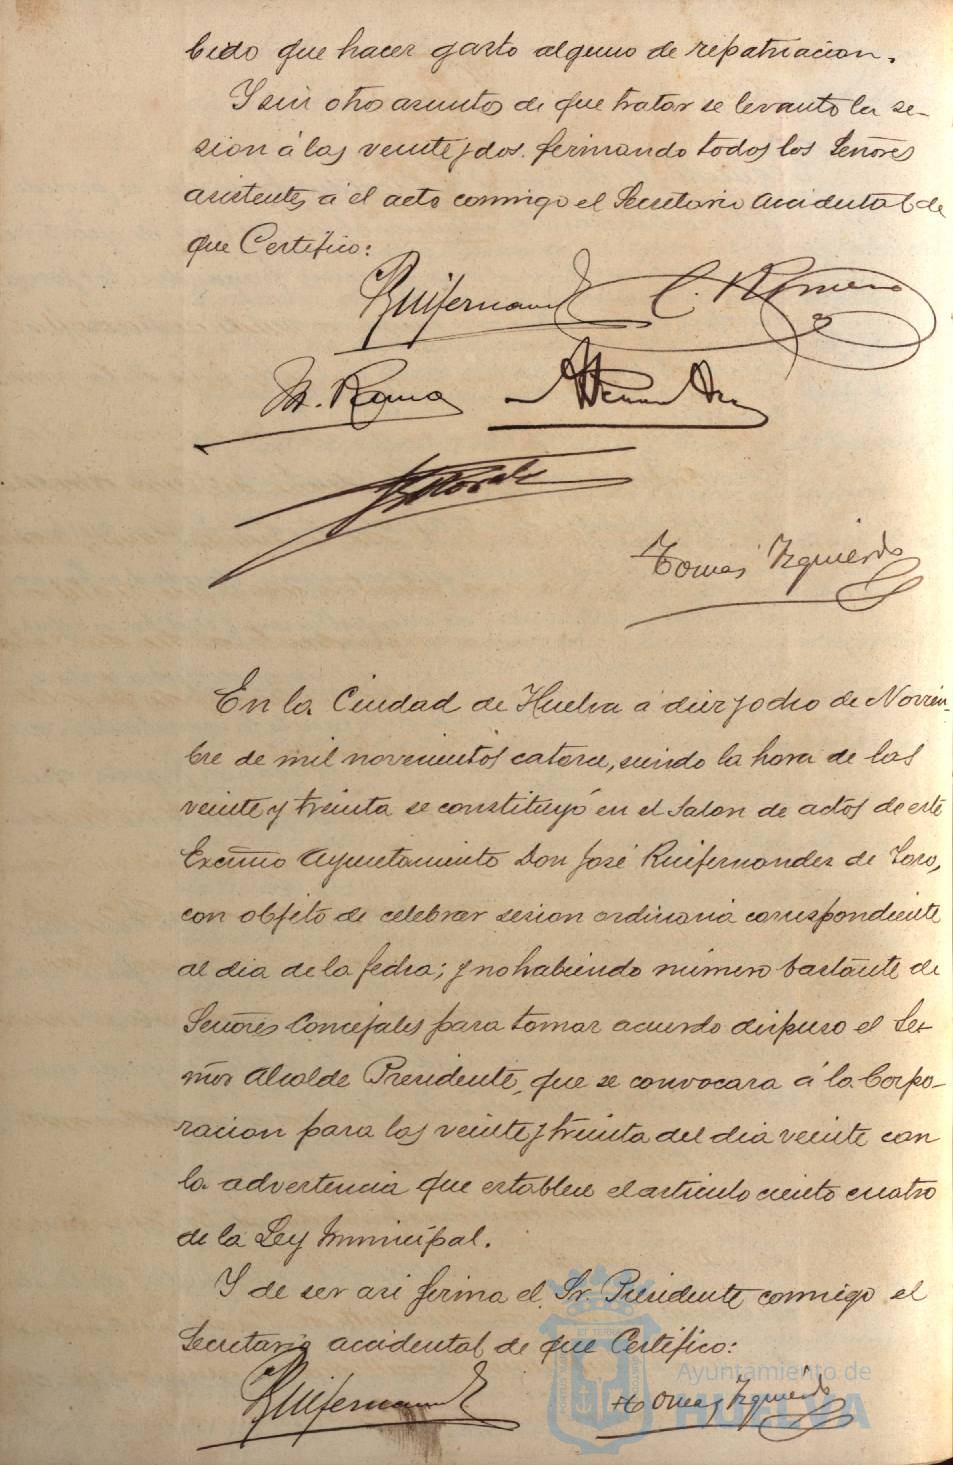 bido que hacer gasto alguno de repatriacion.
Y sin otros asuntos de que tratar se levantó la se-
sion á las veinte y dos. firmando todos los Señores
asistentes á el acto conmigo el Secretario Accidental de
que Certifico:
Ruifernandez C. Romero
M. Roma
Tomás Izquierdo
En la Ciudad de Huelva á diez y ocho de Noviem-
bre de mil novecientos catorce, siendo la hora de las
veinte y treinta se constituyó en el Salon de actos de este
Excmo Ayuntamiento Don José Ruifernandez de Toro,
con objeto de celebrar sesion ordinaria correspondiente
al dia de la fecha; y no habiendo número bastante de
Señores Concejales para tomar acuerdo dispuso el Se-
ñor Alcalde Presidente, que se convocara á la Corpo-
racion para las veinte y treinta del dia veinte con
la advertencia que establece el articulo ciento cuatro
de la Ley Municipal.
Y de ser asi firma el Sr. Presidente conmigo el
Secretario accidental de que Certifico:
Ruifernandez Tomas Izquierdo
Ayuntamiento de
HUELVA